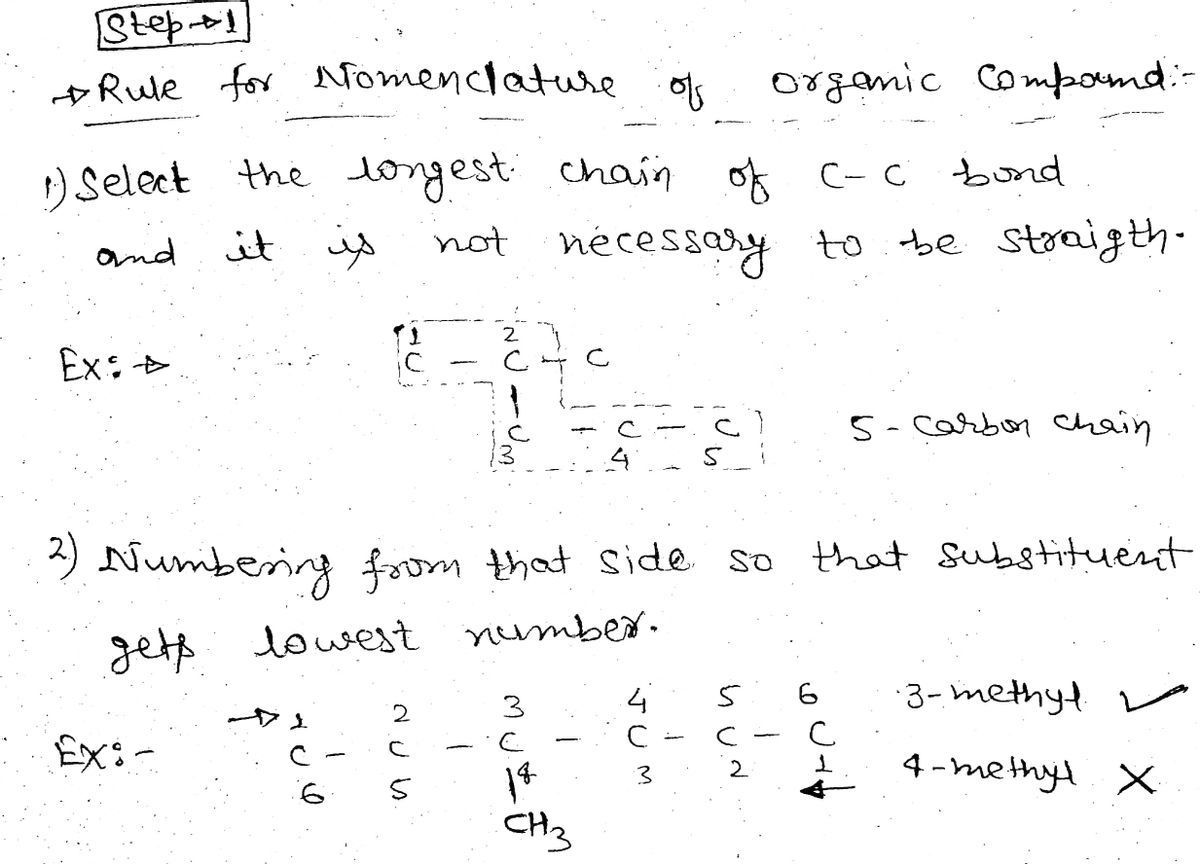 Step→1
→Rule for Nomenclature of organic Compound:-
1) Select the longest chain of C-C bond
and it is not necessary to be straigth.
Ex:→
1 2
C - C - C
|
C - C - C
3 4 5
5-Carbon chain
2) Numbering from that side so that substituent
gets lowest number.
→1 2 3 4 5 6
3-methyl ✓
Ex:-
C - C - C - C - C - C
6 5 4 3 2 1
←
4-methyl ×
|
CH3